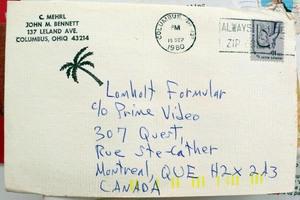 C. MEHRL
JOHN M. BENNETT
137 LELAND AVE.
COLUMBUS, OHIO 43214
COLUMBUS
PM
15 SEP
1980
ALWAYS
ZIP
Lomholt Formular
c/o Prime Video
307 Quest,
Rue Ste-Cather
Montreal, QUE H2X 2A3
CANADA